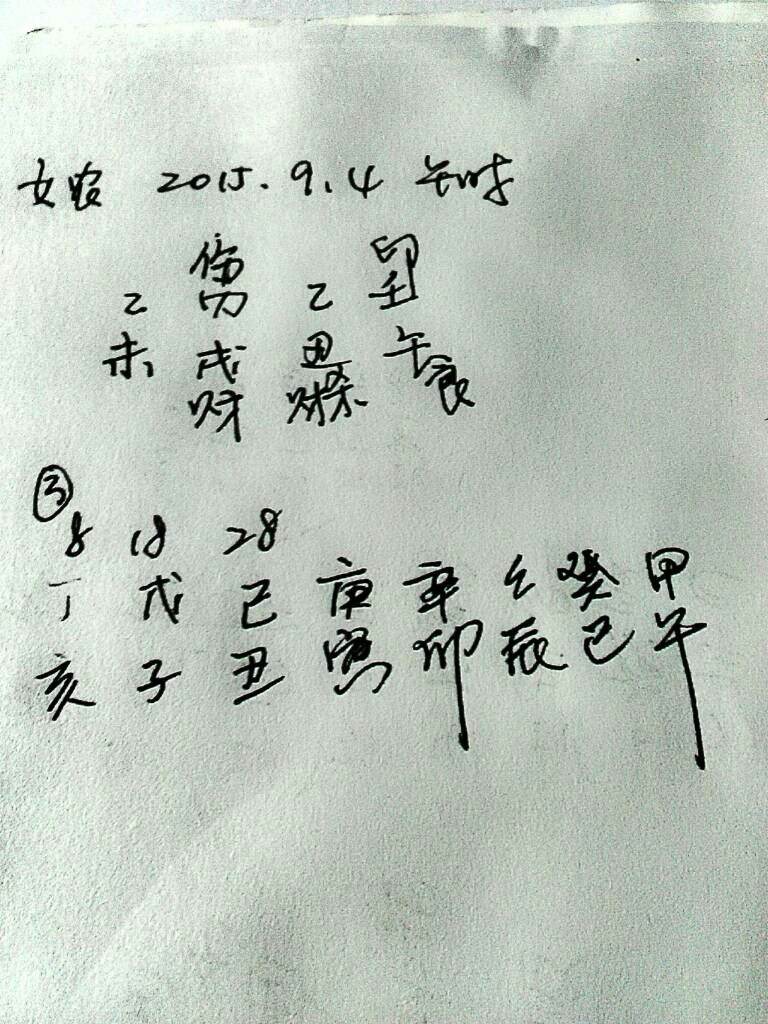 女农 2015.9.4 午时
伤 印
乙 丙 乙 壬
未 戌 丑 午
财 财杀 食
③
8 18 28
丁 戊 己 庚 辛 壬 癸 甲
亥 子 丑 寅 卯 辰 巳 午